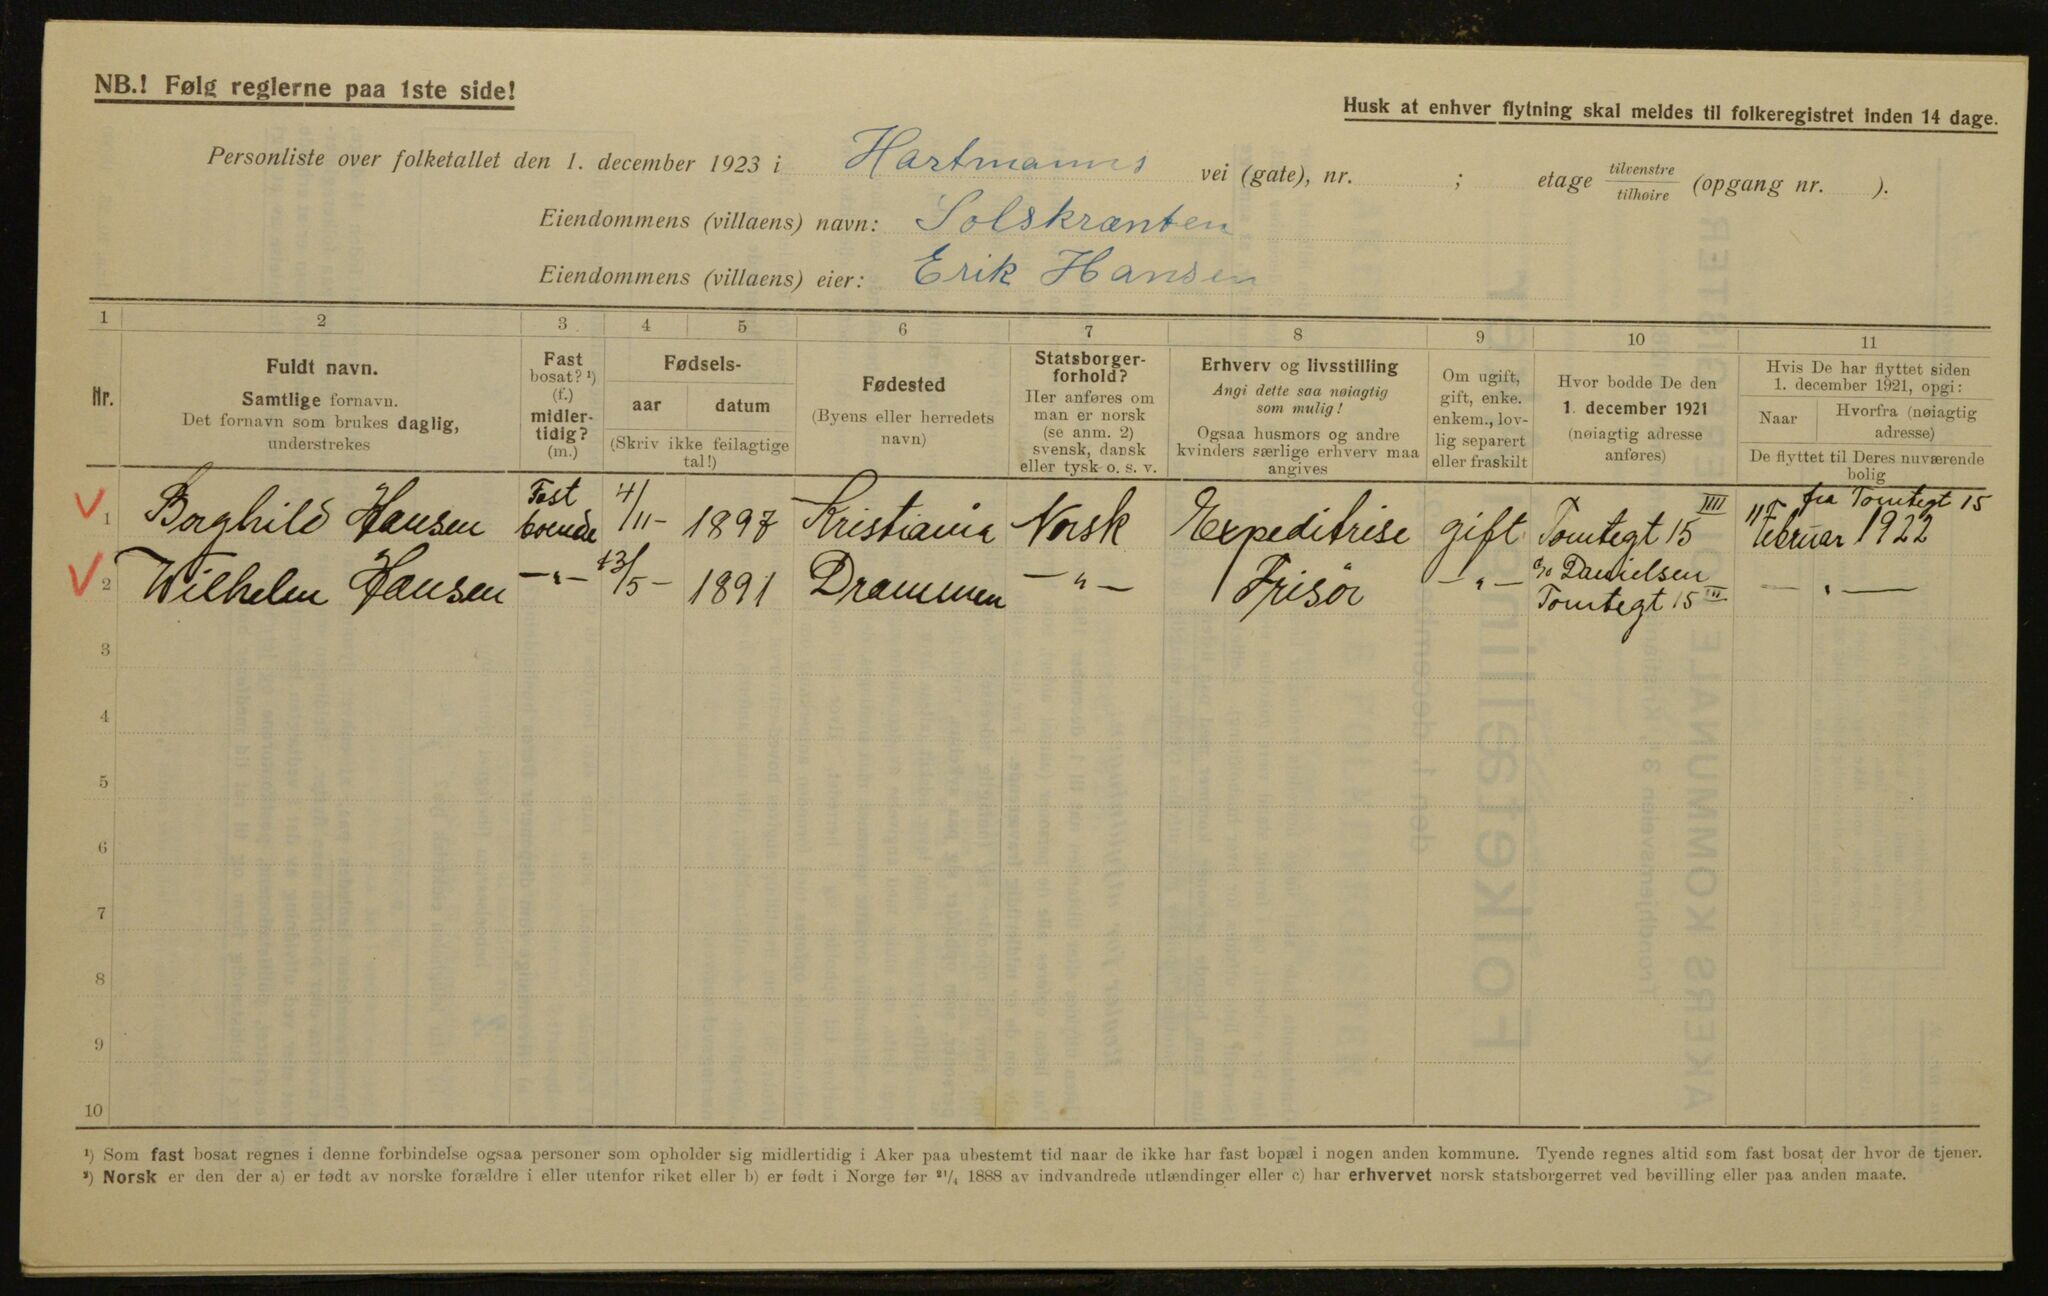 NB.! Følg reglerne paa 1ste side!
Husk at enhver flytning skal meldes til folkeregistret inden 14 dage.
Personliste over folketallet den 1. december 1923 i Hartmanns vei (gate), nr. ; etage tilvenstre / tilhøire (opgang nr. ).
Eiendommens (villaens) navn: Solskrænten
Eiendommens (villaens) eier: Erik Hansen
1 2 3 4 5 6 7 8 9 10 11
Nr.
Fuldt navn.
Samtlige fornavn.
Det fornavn som brukes daglig,
understrekes
Fast
bosat? ¹)
(f.)
midler-
tidig?
(m.)
Fødsels-
aar datum
(Skriv ikke feilagtige
tal!)
Fødested
(Byens eller herredets
navn)
Statsborger-
forhold?
Her anføres om
man er norsk
(se anm. 2)
svensk, dansk
eller tysk o. s. v.
Erhverv og livsstilling
Angi dette saa nøiagtig
som mulig!
Ogsaa husmors og andre
kvinders særlige erhverv maa
angives
Om ugift,
gift, enke.
enkem., lov-
lig separert
eller fraskilt
Hvor bodde De den
1. december 1921
(nøiagtig adresse
anføres)
Hvis De har flyttet siden
1. december 1921, opgi:
Naar Hvorfra (nøiagtig
adresse)
De flyttet til Deres nuværende
bolig
1 Borghild Hansen Fast boende 4/11- 1897 Kristiania Norsk Expeditrise gift Tomtegt 15 IIII Februar 1922 fra Tomtegt 15
2 Wilhelm Hansen —"— 13/5- 1891 Drammen —"— Frisör —"— c/o Danielsen Tomtegt 15 III —"—
3
4
5
6
7
8
9
10
¹) Som fast bosat regnes i denne forbindelse ogsaa personer som opholder sig midlertidig i Aker paa ubestemt tid naar de ikke har fast bopæl i nogen anden kommune. Tyende regnes altid som fast bosat der hvor de tjener.
²) Norsk er den der a) er født av norske forældre i eller utenfor riket eller b) er født i Norge før 21/4 1888 av indvandrede utlændinger eller c) har erhvervet norsk statsborgerret ved bevilling eller paa anden maate.